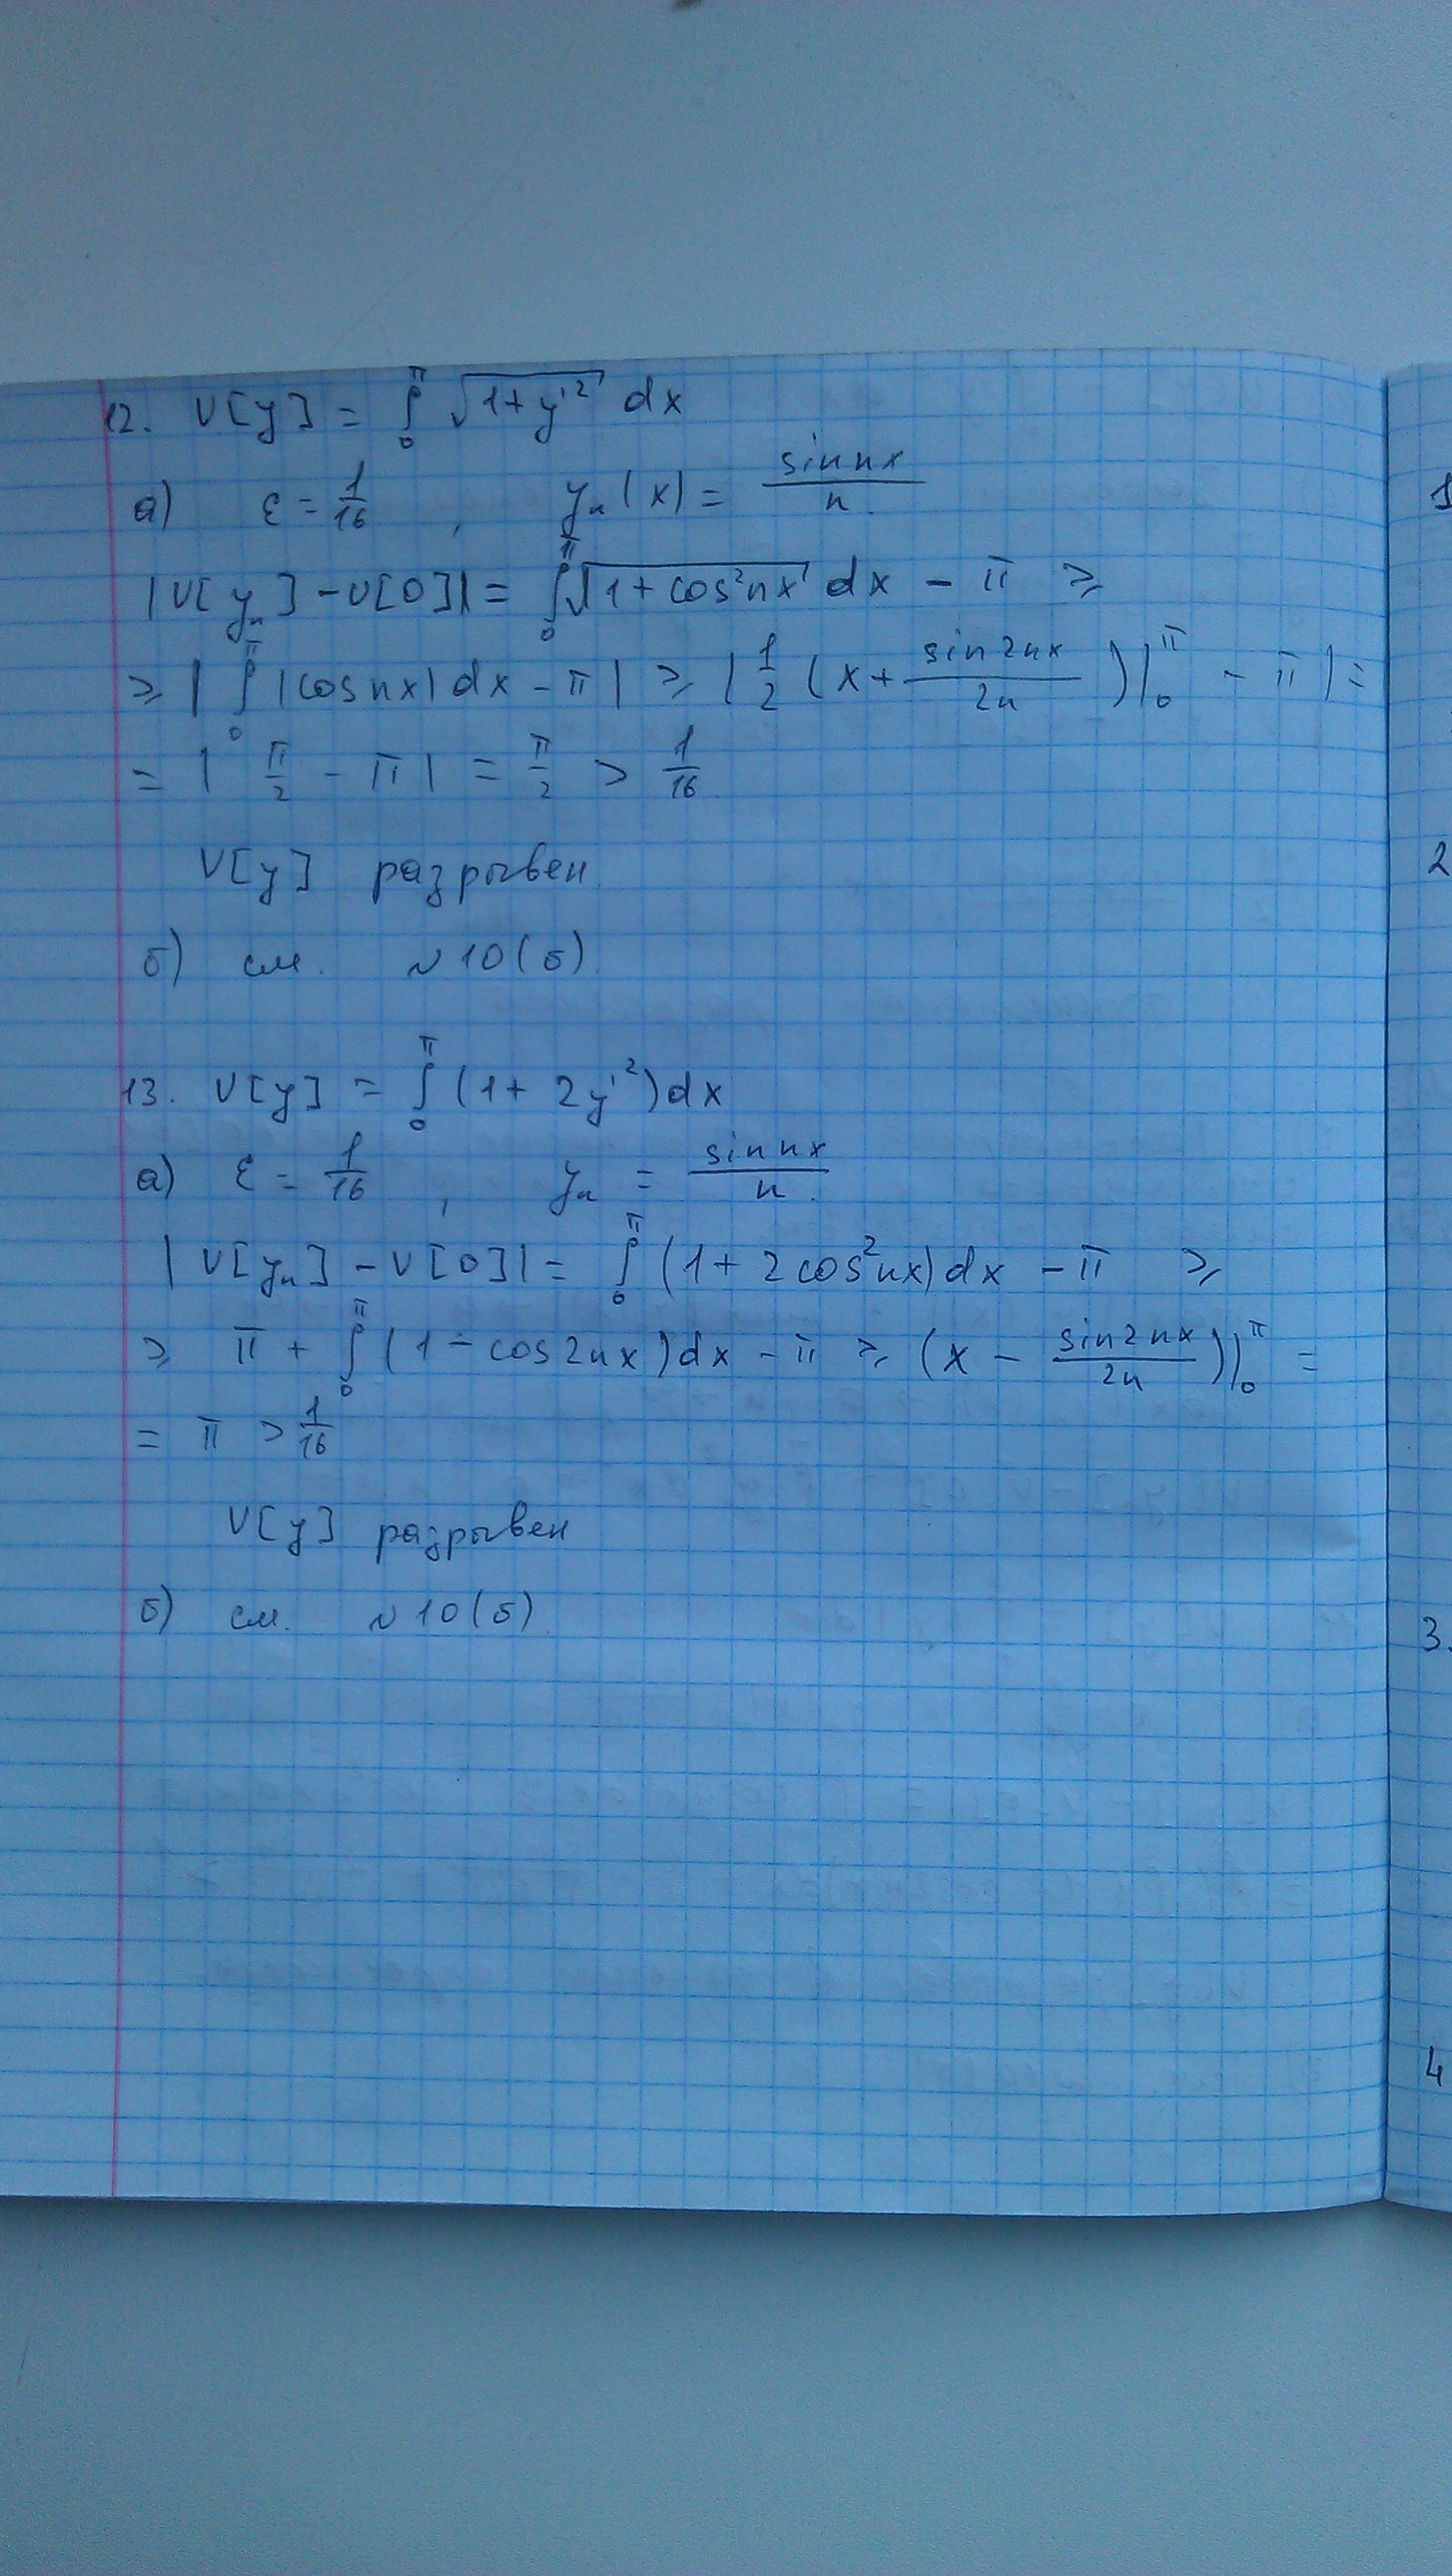 12. V[y] = ∫₀^π √(1+y'²) dx
а) ε = 1/16 , yₙ(x) = sin nx / n.
|V[yₙ] − V[0]| = ∫₀^π √(1+cos²nx) dx − π ≥
≥ | ∫₀^π |cos nx| dx − π | ≥ | 1/2 (x + sin2nx / 2n)|₀^π − π | =
= | π/2 − π | = π/2 > 1/16
V[y] разрывен
б) см. №10(б)
13. V[y] = ∫₀^π (1+2y'²)dx
а) ε = 1/16 , yₙ = sin nx / n.
| V[yₙ] − V[0]| = ∫₀^π (1+2cos²nx)dx − π ≥
≥ π + ∫₀^π (1 − cos2nx)dx − π ≥ (x − sin2nx / 2n)|₀^π =
= π > 1/16
V[y] разрывен
б) см. №10(б)
1
2
3.
4